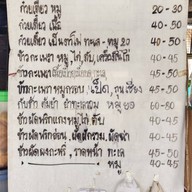 ก๋วยเตี๋ยว หมู 20-30
ก๋วยเตี๋ยว เนื้อ 40-50
ก๋วยเตี๋ยว เย็นตาโฟ ทะเล - หมู 20 40-50
ข้าวกะเพรา หมู, ไก่, ตับ, เครื่องในไก่ 40-45
ข้าวกะเพรา 45-50
ข้าวกะเพรา หมูกรอบ, เป็ด, กุนเชียง 45-50
กับข้าว หมู 60 60-80
ข้าวผัดพริกแกงหมู, ไก่, ตับ 40-45
ข้าวผัดพริกอ่อน, ผัดผักรวม, ผัดฉ่า 40-45
ข้าวผัดผงกะหรี่, ราดหน้า ทะเล 45-50
หมู 40-45